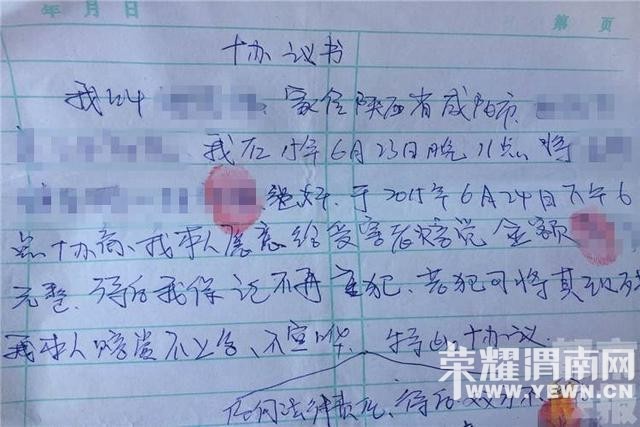 年 月 日 第 页
协议书
我叫 家住陕西省咸阳市
我在15年6月23日晚11点将
强奸. 于2015年6月24日下午6
点协商、我本人愿意给受害者赔偿金额
元整. 我保证不再重犯、若犯可将其
我本人赔偿不上告、不宣哗. 特此协议.
任何法律责任.
荣耀渭南网
WWW.YEWN.CN
报